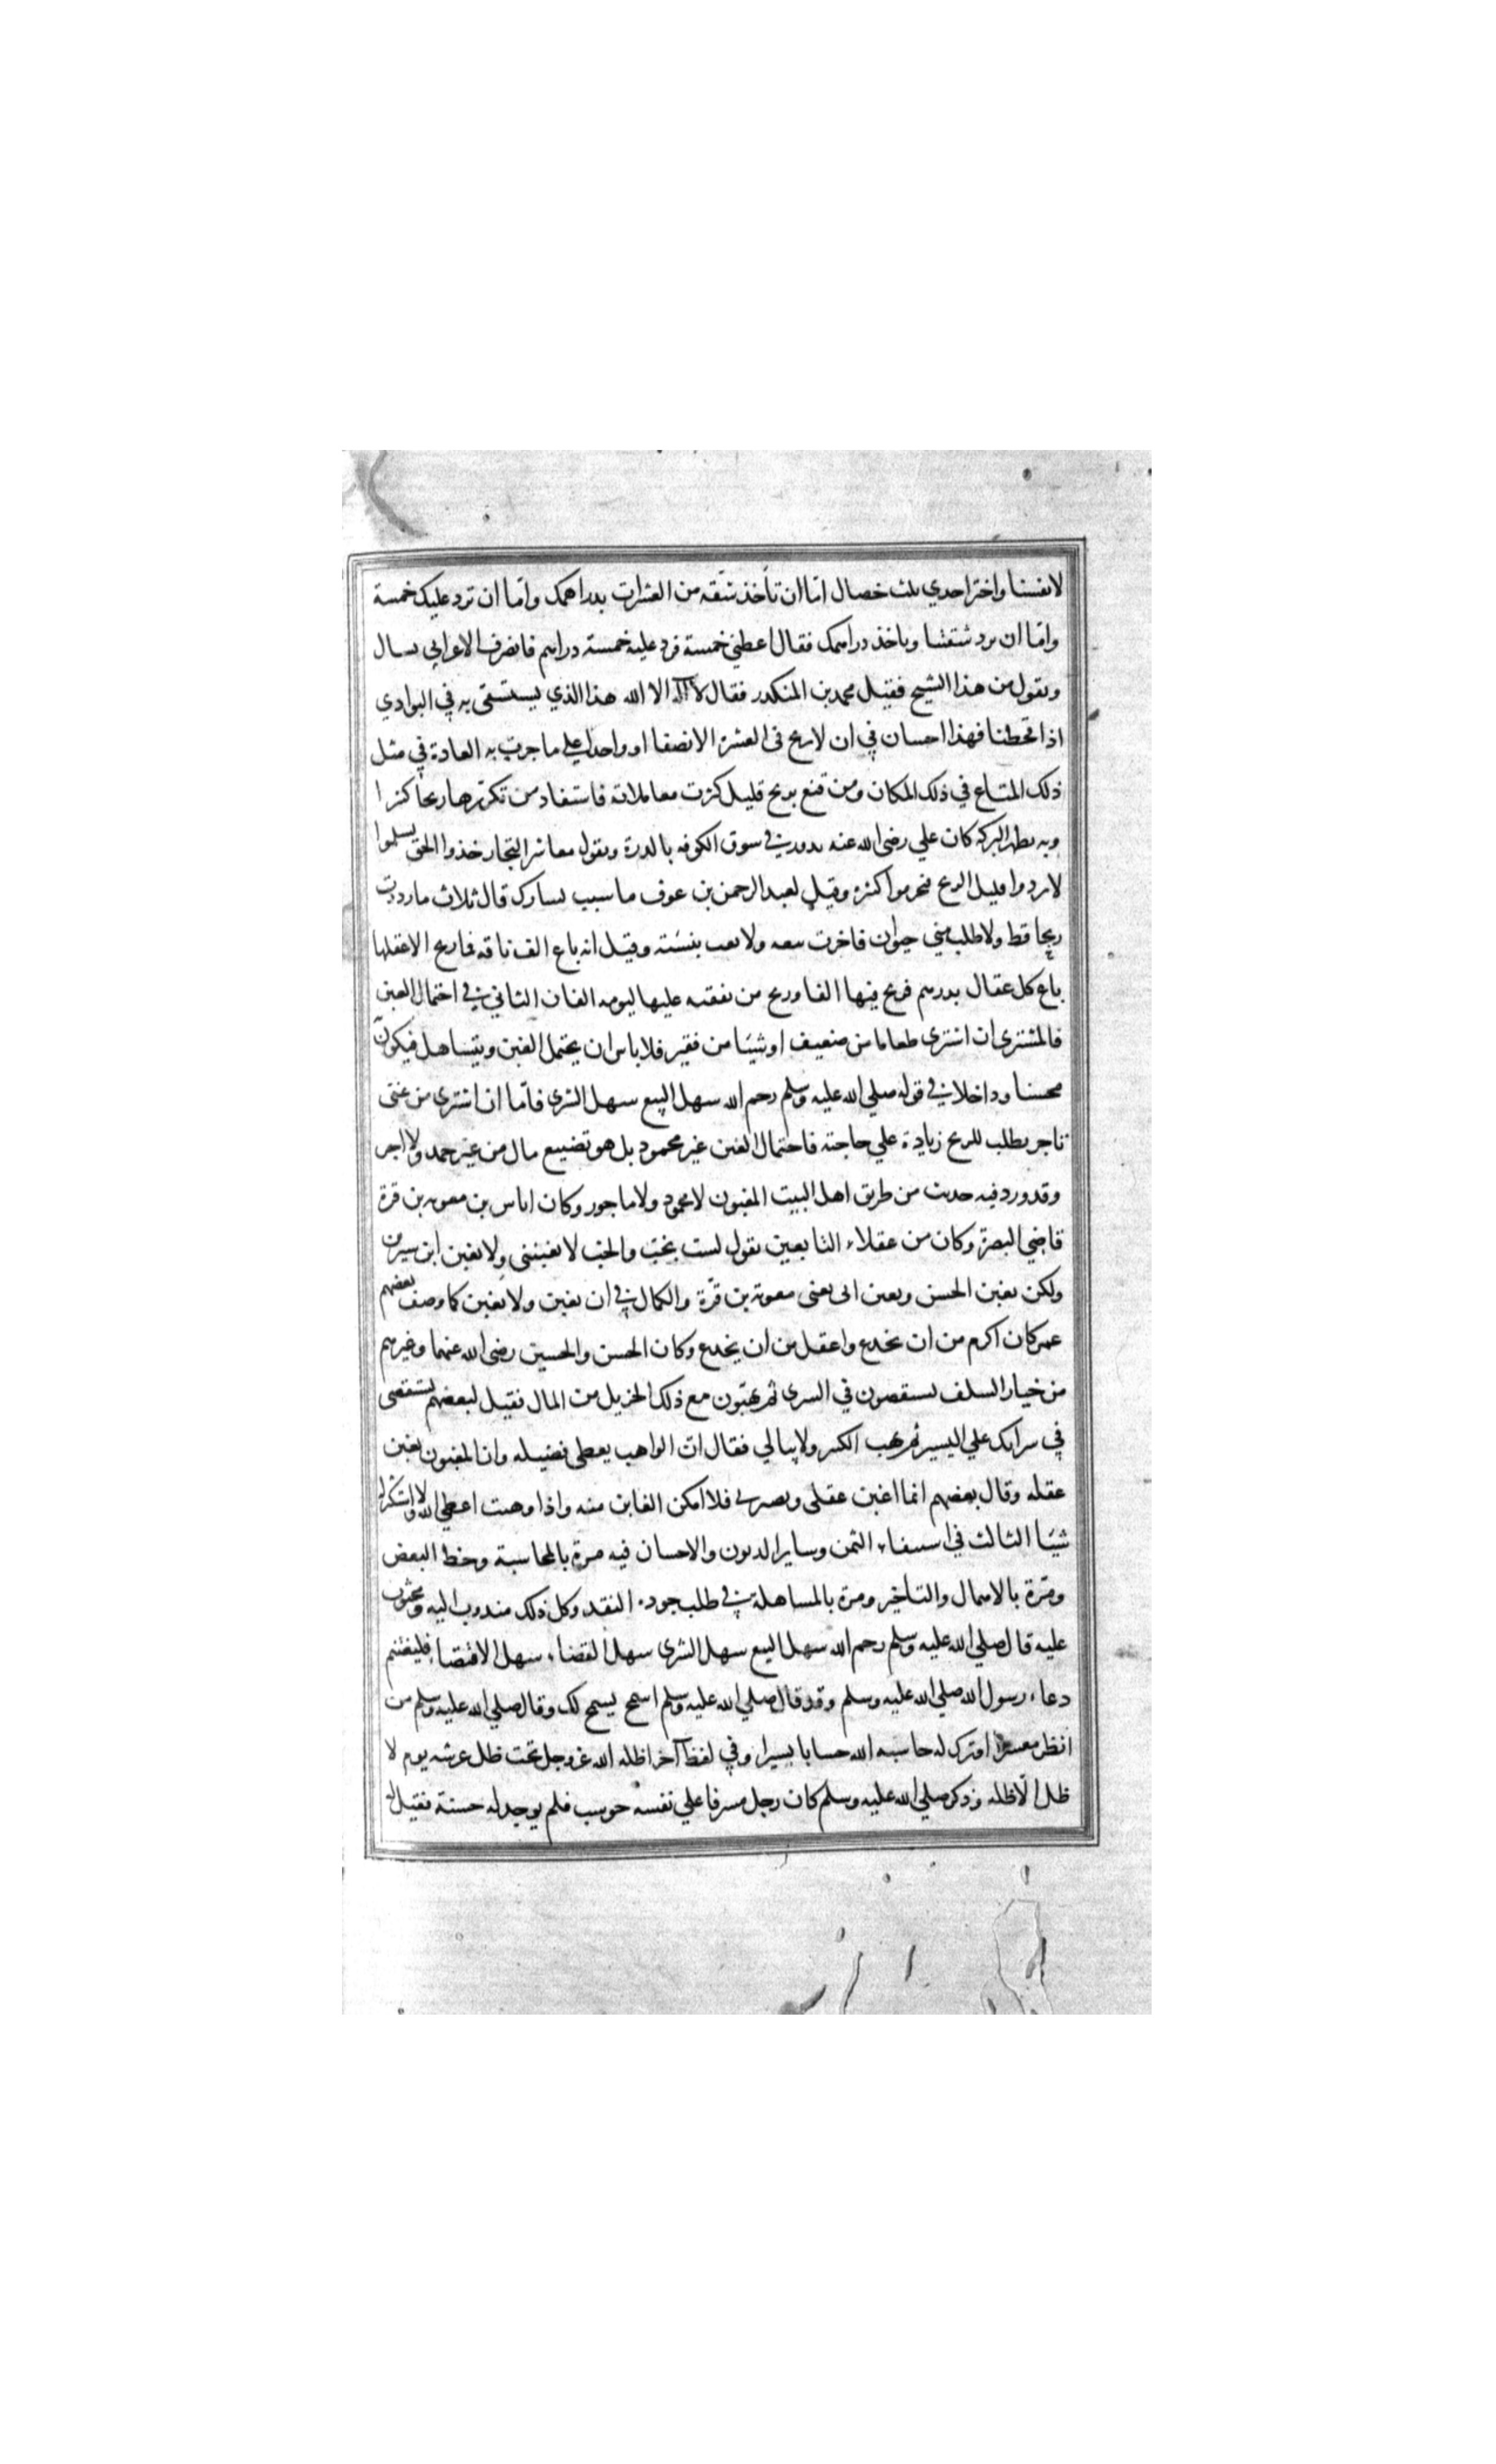 لانفسنا واختر احدي ثلث خصال اما ان تأخذ شقه من العشرات بدراهمك واما ان نرد عليك خمسة
واما ان نرد شقتنا وتاخذ دراهمك فقال اعطني خمسة فرد عليه خمسة دراهم فانصرف الاعرابي يسال
ويقول من هذا الشيخ فقيل محمد بن المنكدر فقال لا اله الا الله هذا الذي يستسقى به في البوادي
اذا قحطنا فهذا احسان في ان لا يربح في العشرة الا نصفا او واحدا علي ما جرت به العادة في مثل
ذلك المتاع في ذلك المكان ومن قنع بربح قليل كثرت معاملاته فاستفاد من تكررها ربحا كثيرا
وبه يظهر البركة كان علي رضي الله عنه يدور في سوق الكوفه بالدرة ويقول معاشر التجار خذوا الحق تسلموا
لا تردوا قليل الربح فتحرموا كثيره وقيل لعبد الرحمن بن عوف ما سبب يسارك قال ثلاث ما رددت
ربحا قط ولا طلب مني حيوان فاخرت بيعه ولا بعت بنسئة وقيل انه باع الف ناقه فما ربح الا عقلها
باع كل عقال بدرهم فربح فيها الفا وربح من نفقته عليها ليومه الفان الثاني في احتمال الغبن
فالمشتري ان اشترى طعاما من ضعيف او شيئا من فقير فلا باس ان يحتمل الغبن ويتساهل فيكون
محسنا وداخلا في قوله صلي الله عليه وسلم رحم الله سهل البيع سهل الشرى فاما ان اشترى من غني
تاجر يطلب للربح زيادة علي حاجته فاحتمال الغبن غير محمود بل هو تضييع مال من غير حمد ولا اجر
وقد ورد فيه حديث من طريق اهل البيت المغبون لا محمود ولا ماجور وكان اياس بن معوية بن قرة
قاضي البصرة وكان من عقلاء التابعين يقول لست بخب والخب لا يغبنني ولا يغبن ابن سيرين
ولكن يغبن الحسن ويغبن ابى يعني معوية بن قرة والكمال في ان يغبن ولا يغبن كما وصف بعضهم
عمر كان اكرم من ان يخدع واعقل من ان يخدع وكان الحسن والحسين رضي الله عنهما وغيرهم
من خيار السلف يستقصون في الشرى ثم يهبون مع ذلك الجزيل من المال فقيل لبعضهم تستقصى
في شرائك علي اليسير ثم تهب الكثير ولا تبالي فقال ان الواهب يعطى فضيله وان المغبون يغبن
عقله وقال بعضهم انما اغبن عقلى وبصرى فلا امكن الغابن منه واذا وهبت اعطي الله ولا استكثر له
شيئا الثالث في استيفاء الثمن وساير الديون والاحسان فيه مرة بالمحاسبة وحط البعض
ومرة بالامهال والتأخير ومرة بالمساهلة في طلب جودة النقد وكل ذلك مندوب اليه ومحثوث
عليه قال صلي الله عليه وسلم رحم الله سهل البيع سهل الشرى سهل القضاء سهل الاقتضاء فليغتنم
دعاء رسول الله صلي الله عليه وسلم وقد قال صلي الله عليه وسلم اسمح يسمح لك وقال صلي الله عليه وسلم من
انظر معسرا او ترك له حاسبه الله حسابا يسيرا وفي لفظ آخر اظله الله عز وجل تحت ظل عرشه يوم لا
ظل الا ظله وذكر صلي الله عليه وسلم كان رجل مسرفا علي نفسه حوسب فلم يوجد له حسنة فقيل له